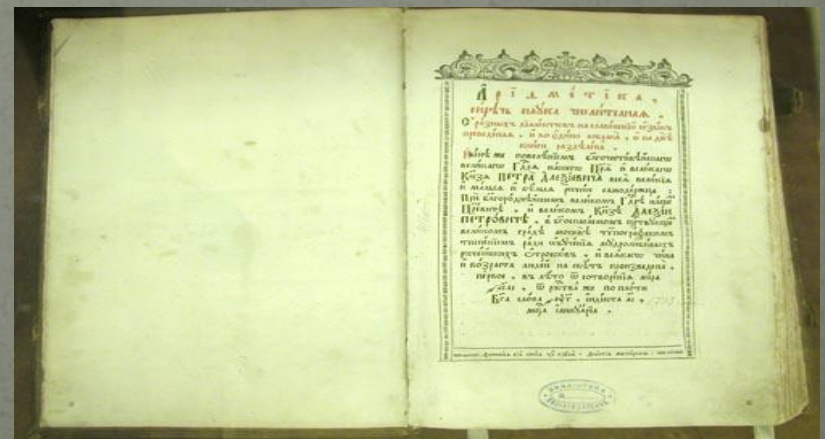 Арїѳметїка,
сирѣчь наука числителная.
С разныхъ дїалектовъ на славенскїй ѧзыкъ
преведеная, и во едино собрана, и на двѣ
книги раздѣлена.
Нынѣ же повелѣнїемъ блгочестивѣйшагѡ
великагѡ Гдрѧ нашегѡ Црѧ и великагѡ
Кнѕѧ ПЕТРА АЛЕѮЇЕВИЧА всеѧ великїѧ
и малыѧ и бѣлыѧ рѡссїи самодержца:
При блгороднѣйшемъ великомъ Гдрѣ нашемъ
Цревичѣ, и великомъ Кнѕѣ АЛЕѮЇИ
ПЕТРОВИЧѢ, в бгоспасаемомъ црствующемъ
великомъ градѣ москвѣ тѵпографскимъ
тисненїемъ ради ѡбученїѧ мудролюбивыхъ
рѡссїйскихъ ѻтрокѡвъ, и всѧкагѡ чина
и возраста людей на свѣтъ произведена,
первое, въ лѣто ѿ сотворенїѧ мїра
҂зсаі, ѿ ржтва же по плоти
Бга слова ҂аѱг, індїкта аі, 1703
мсца їаннуарїа.